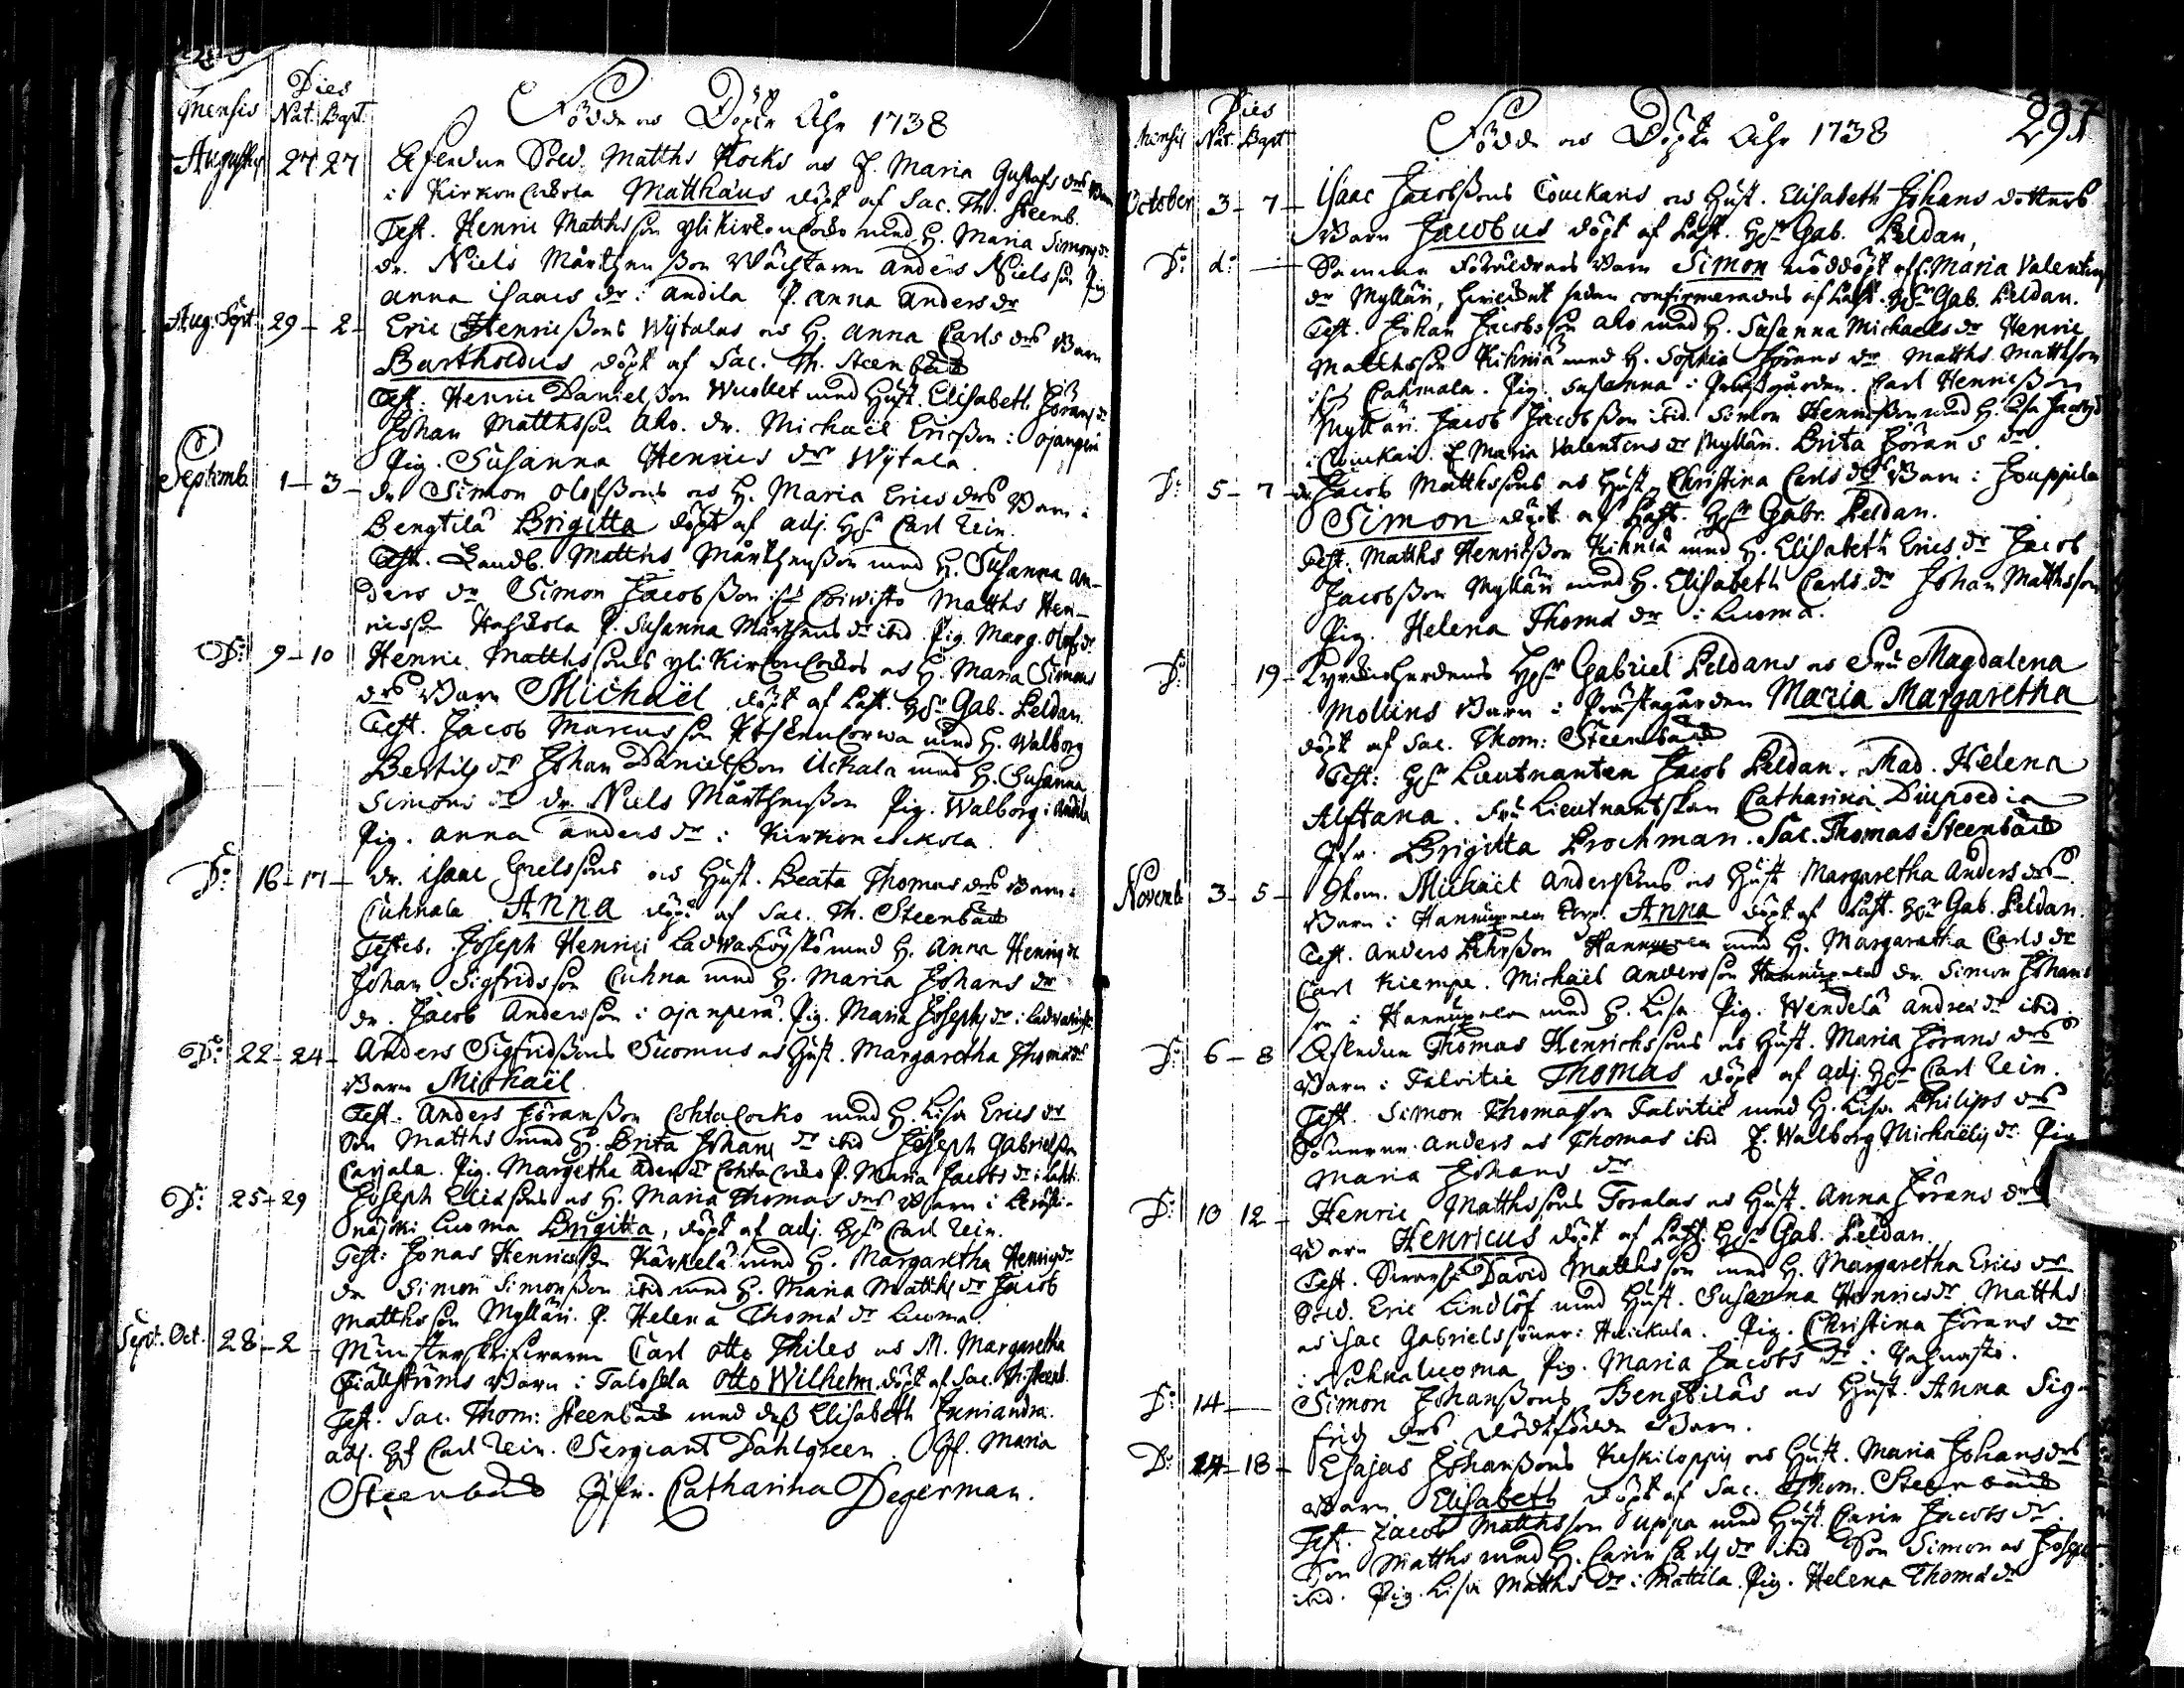 Mensis Dies Nat. Bapt. Födde oc Döpte Åhr 1738
Augusti 27 27 Afsendne Sold. Matths Kocks oc H. Maria Gustafs drs Barn
i Kirkon Matthäus döpt af Sac. Th. Steenb.
Test. Henric Matthsson ylikirkon med H. Maria Simons dr
dr. Niels Mårthensson Wächtaren Anders Nielsson Pig.
Anna Isaacs dr i Andila P. Anna Anders dr
Aug. Sept. 29 - 2 Eric Henricssons Wÿtalas oc H. Anna Carls drs Barn
Bartholdus döpt af Sac. Th. Steenbäck
Test. Henric Danielsson med Hust. Elisabeth Jörans dr
Johan Matthsson Aho. dr. Michaël Ericsson i Ojanperä
Pig. Susanna Henrics dr Wÿtala.
Septemb. 1 - 3 dr Simon Olofssons oc H. Maria Erics drs Barn i
Bengtilä Brigitta döpt af adj. Hr Carl Rein.
Test. Matths Mårthensson med H. Susanna An-
ders dr Simon Jacobsson Matths Hen-
ricsson P. Susanna Mårthens dr ibid. Pig. Marg. Olofs dr
Do 9 - 10 Henric Matthssons oc H. Maria Simons
drs Barn Michaël döpt af Past. Hr Gab. Peldan.
Test. Jacob Marcusson med H. Walborg
Bertils dr Johan Danielsson Uckala med H. Susanna
Simons dr dr Niels Mårthensson Pig. Walborg i Andila
Pig. Anna Anders dr i Kirkon
Do 16 - 17 dr. Isaac Grelssons oc Hust. Beata Thomas drs Barn i
Cuhnala Anna döpt af Sac. Th. Steenbäck
Testes. Joseph Henrici med H. Anna Henrics dr
Johan Sigfridsson Cuhna med H. Maria Johans dr
dr. Jacob Andersson i Ojanperä. Pig. Maria Josephs dr i
Do 22 - 24 Anders Sigfridssons Suomus oc Hust. Margaretha Thomæ drs
Barn Michaël
Test. Anders Jöransson med H. Lisa Erics dr
Son Matths med H. Brita Johans dr ibid Joseph Gabrielsson
Carjala. Pig. Margetha P. Maria Jacobs dr i
Do 25 - 29 Joseph Eliæsons oc H. Maria Thomas drs Barn i
Luoma Brigitta, döpt af adj. Hr Carl Rein.
Test: Jonas Henricsson Kärkelä med H. Margaretha Henrics dr
dr Simon Simonsson ibid med H. Maria Matths dr Jacob
Matthsson Myllari. P. Helena Thomæ dr Luoma.
Sept. Oct. 28 - 2 Mönsterskrifwaren Carl Otto Thiles oc M. Margaretha
Barn i Talosela Otto Wilhelm döpt af Sac. Th. Steenb.
Test. Sac. Thom: Steenbäck med dess Elisabeth
adj. Hr Carl Rein. Sergeant Dahlgreen. Jf. Maria
Steenbäck Jfr. Catharina Degerman.
Mensis Dies Nat. Bapt Födde oc Döpte Åhr 1738 291
October 3 - 7 Isaac Jacobssons Couckaris oc Hust. Elisabeth Johans dotters
Barn Jacobus döpt af Past. Hr Gab. Peldan,
Do do Samma Föräldrars Barn Simon nöddöpt af E. Maria Valentins
dr Myllari, hwilket sedan confirmerades af Past. Hr Gab. Peldan.
Test. Johan Jacobsson Aho med H. Susanna Michaels dr Henric
Matthsson Kihniä med H. Sophia Jörans dr Matths Matthsson
Pig. Susanna i Prästgården. Carl Henricsson
Myllari. Jacob Jacobsson ibid. Simon Henricsson med H. Lisa Jacobs dr
i Couckari. E. Maria Valentins dr Myllari. Brita Jörans dr
Do 5 - 7 dr Jacob Matthssons oc Hust. Christina Carls drs Barn i Jouppila
Simon döpt af Past. Hr Gabr. Peldan.
Test: Matths Henricsson Kihniä med H. Elisabeth Erics dr Jacob
Jacobsson Myllari med H. Elisabeth Carls dr Johan Matthsson
Pig. Helena Thomæ dr i Luoma.
Do 19 Kyrckioherdens Hr Gabriel Peldans oc Fru Magdalena
Mollins Barn i Prästegården Maria Margaretha
döpt af Sac. Thom: Steenbäck
Test: Hr Lieutnanten Jacob Peldan. Mad. Helena
Alftana. Fru Lieutnantskan Catharina
Jfr. Brigitta Brochman. Sac. Thomas Steenbäck
Novemb 3 - 5 Skom. Michaël Anderssons oc Hust Margaretha Anders drs
Barn i Anna döpt af Past. Hr Gab. Peldan.
Test. Anders med H. Margaretha Carls dr
Carl Kiempe. Michaël Andersson dr Simon Johans
son i med H. Lisa Pig. Wendela Andreæ dr ibid.
Do 6 - 8 Afsendne Thomas Henrichssons oc Hust. Maria Jörans drs
Barn i Talvitie Thomas döpt af adj. Hr Carl Rein.
Test. Simon Thomasson Talvitie med H. Lisa Philips dr
Sönerne Anders oc Thomas ibid P. Walborg Michaëlis dr Pig
Maria Johans dr
Do 10 12 Henric Matthssons Toralas oc Hust. Anna Jörans drs
Barn Henricus döpt af Past. Hr Gab. Peldan.
Test. David Matthsson med H. Margaretha Erics dr
Sold. Eric Lindlöf med Hust. Susanna Henrics dr Matths
oc Isac Gabrielssöner i Pig. Christina Jörans dr
i luoma Pig. Maria Jacobs dr i
Do 14 Simon Johanssons Bengtiläs oc Hust. Anna Sig-
frids drs dödfödde Barn.
Do 14 - 18 Esajas Johanssons oc Hust. Maria Johans drs
Barn Elisabeth döpt af Sac. Thom. Steenbäck
Test. Jacob Matthsson Luppa med Hust. Carin Jacobs dr.
Son Matths med H. Carin dr ibid Son Simon oc Joseph
ibid. Pig. Lisa Matths dr i Mattila. Pig. Helena Thomæ dr